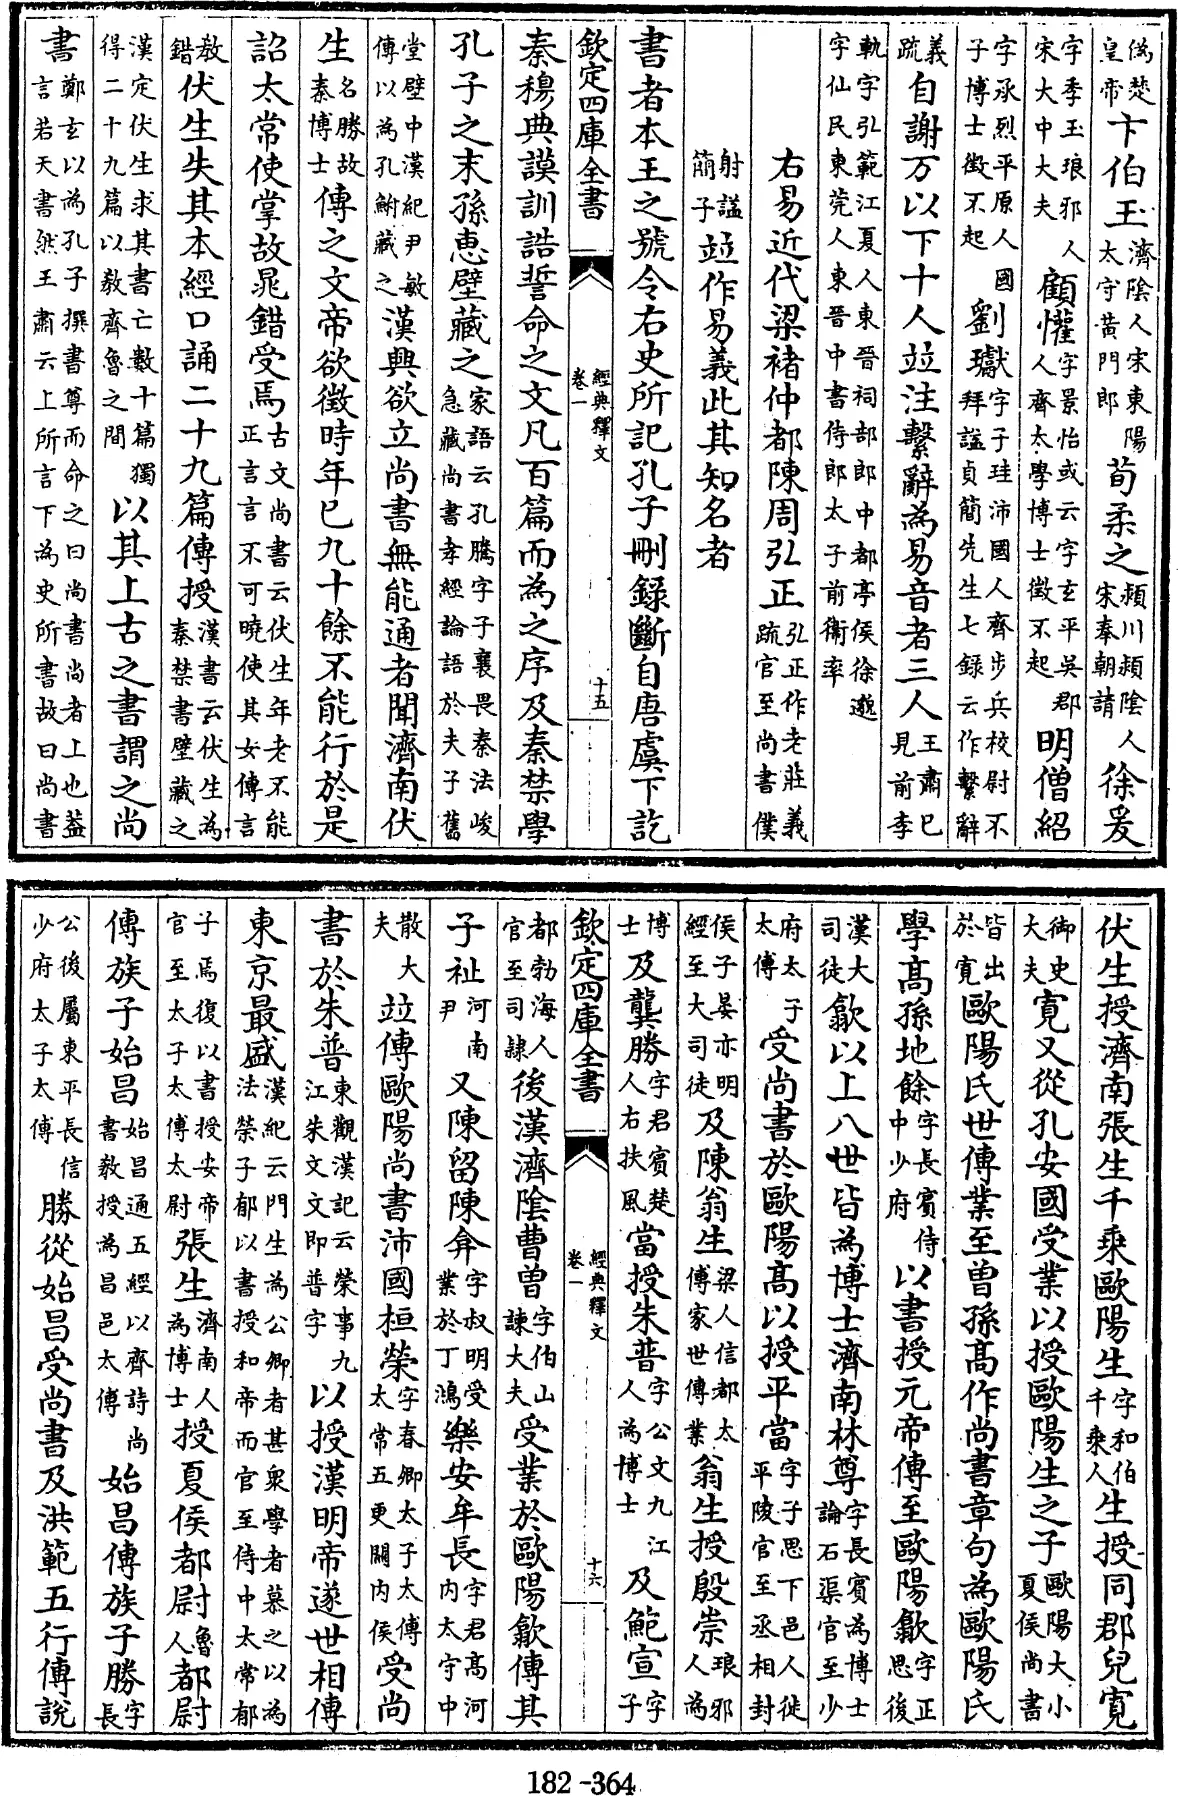 偽楚皇帝卞伯玉濟陰人宋東陽太守黃門郎荀柔之潁川潁陰人宋奉朝請徐爰
字季玉琅邪人宋大中大夫顧懽字景怡或云字玄平吳郡人齊太學博士徵不起明僧紹
字承烈平原人國子博士徵不起劉瓛字子珪沛國人齊步兵校尉不拜諡貞簡先生七録云作繫辭
義疏自謝万以下十人並注繫辭為易音者三人王肅已見前李
軌字弘範江夏人東晉祠部郎中都亭侯徐邈字仙民東莞人東晉中書侍郎太子前衛率
右易近代梁褚仲都陳周弘正弘正作老莊義疏官至尚書僕
射諡簡子並作易義此其知名者
書者本王之號令右史所記孔子刪録斷自唐虞下訖
欽定四庫全書 經典釋文 卷一 十五
秦穆典謨訓誥誓命之文凡百篇而為之序及秦禁學
孔子之末孫惠壁藏之家語云孔騰字子襄畏秦法峻急藏尚書孝經論語於夫子舊
堂壁中漢紀尹敏傳以為孔鮒藏之漢興欲立尚書無能通者聞濟南伏
生名勝故秦博士傳之文帝欲徵時年已九十餘不能行於是
詔太常使掌故晁錯受焉古文尚書云伏生年老不能正言言不可曉使其女傳言
教錯伏生失其本經口誦二十九篇傳授漢書云伏生為秦禁書壁藏之
漢定伏生求其書亡數十篇獨得二十九篇以教齊魯之間以其上古之書謂之尚
書鄭玄以為孔子撰書尊而命之曰尚書尚者上也蓋言若天書然王肅云上所言下為史所書故曰尚書
伏生授濟南張生千乘歐陽生字和伯千乘人生授同郡兒寬
御史大夫寬又從孔安國受業以授歐陽生之子歐陽大小夏侯尚書
皆出於寬歐陽氏世傳業至曾孫高作尚書章句為歐陽氏
學高孫地餘字長賓侍中少府以書授元帝傳至歐陽歙字正思後
漢大司徒歙以上八世皆為博士濟南林尊字長賓為博士論石渠官至少
府太子太傅受尚書於歐陽高以授平當字子思下邑人徙平陵官至丞相封
侯子晏亦明經至大司徒及陳翁生梁人信都太傅家世傳業翁生授殷崇琅邪人為
博士及龔勝字君賓楚人右扶風當授朱普字公文九江人為博士及鮑宣字子
都勃海人官至司隸後漢濟陰曹曾字伯山諫大夫受業於歐陽歙傳其
子祉河南尹又陳留陳弇字叔明受業於丁鴻樂安牟長字君高河內太守中
散大夫並傳歐陽尚書沛國桓榮字春卿太子太傅太常五更關內侯受尚
書於朱普東觀漢記云榮事九江朱文文即普字以授漢明帝遂世相傳
東京最盛漢紀云門生為公卿者甚衆學者慕之以為法榮子郁以書授和帝而官至侍中太常郁
子焉復以書授安帝官至太子太傅太尉張生濟南人為博士授夏侯都尉魯人都尉
傳族子始昌始昌通五經以齊詩尚書教授為昌邑太傅始昌傳族子勝字長
公後屬東平長信少府太子太傅勝從始昌受尚書及洪範五行傳說
欽定四庫全書 經典釋文 卷一 十六
182-364